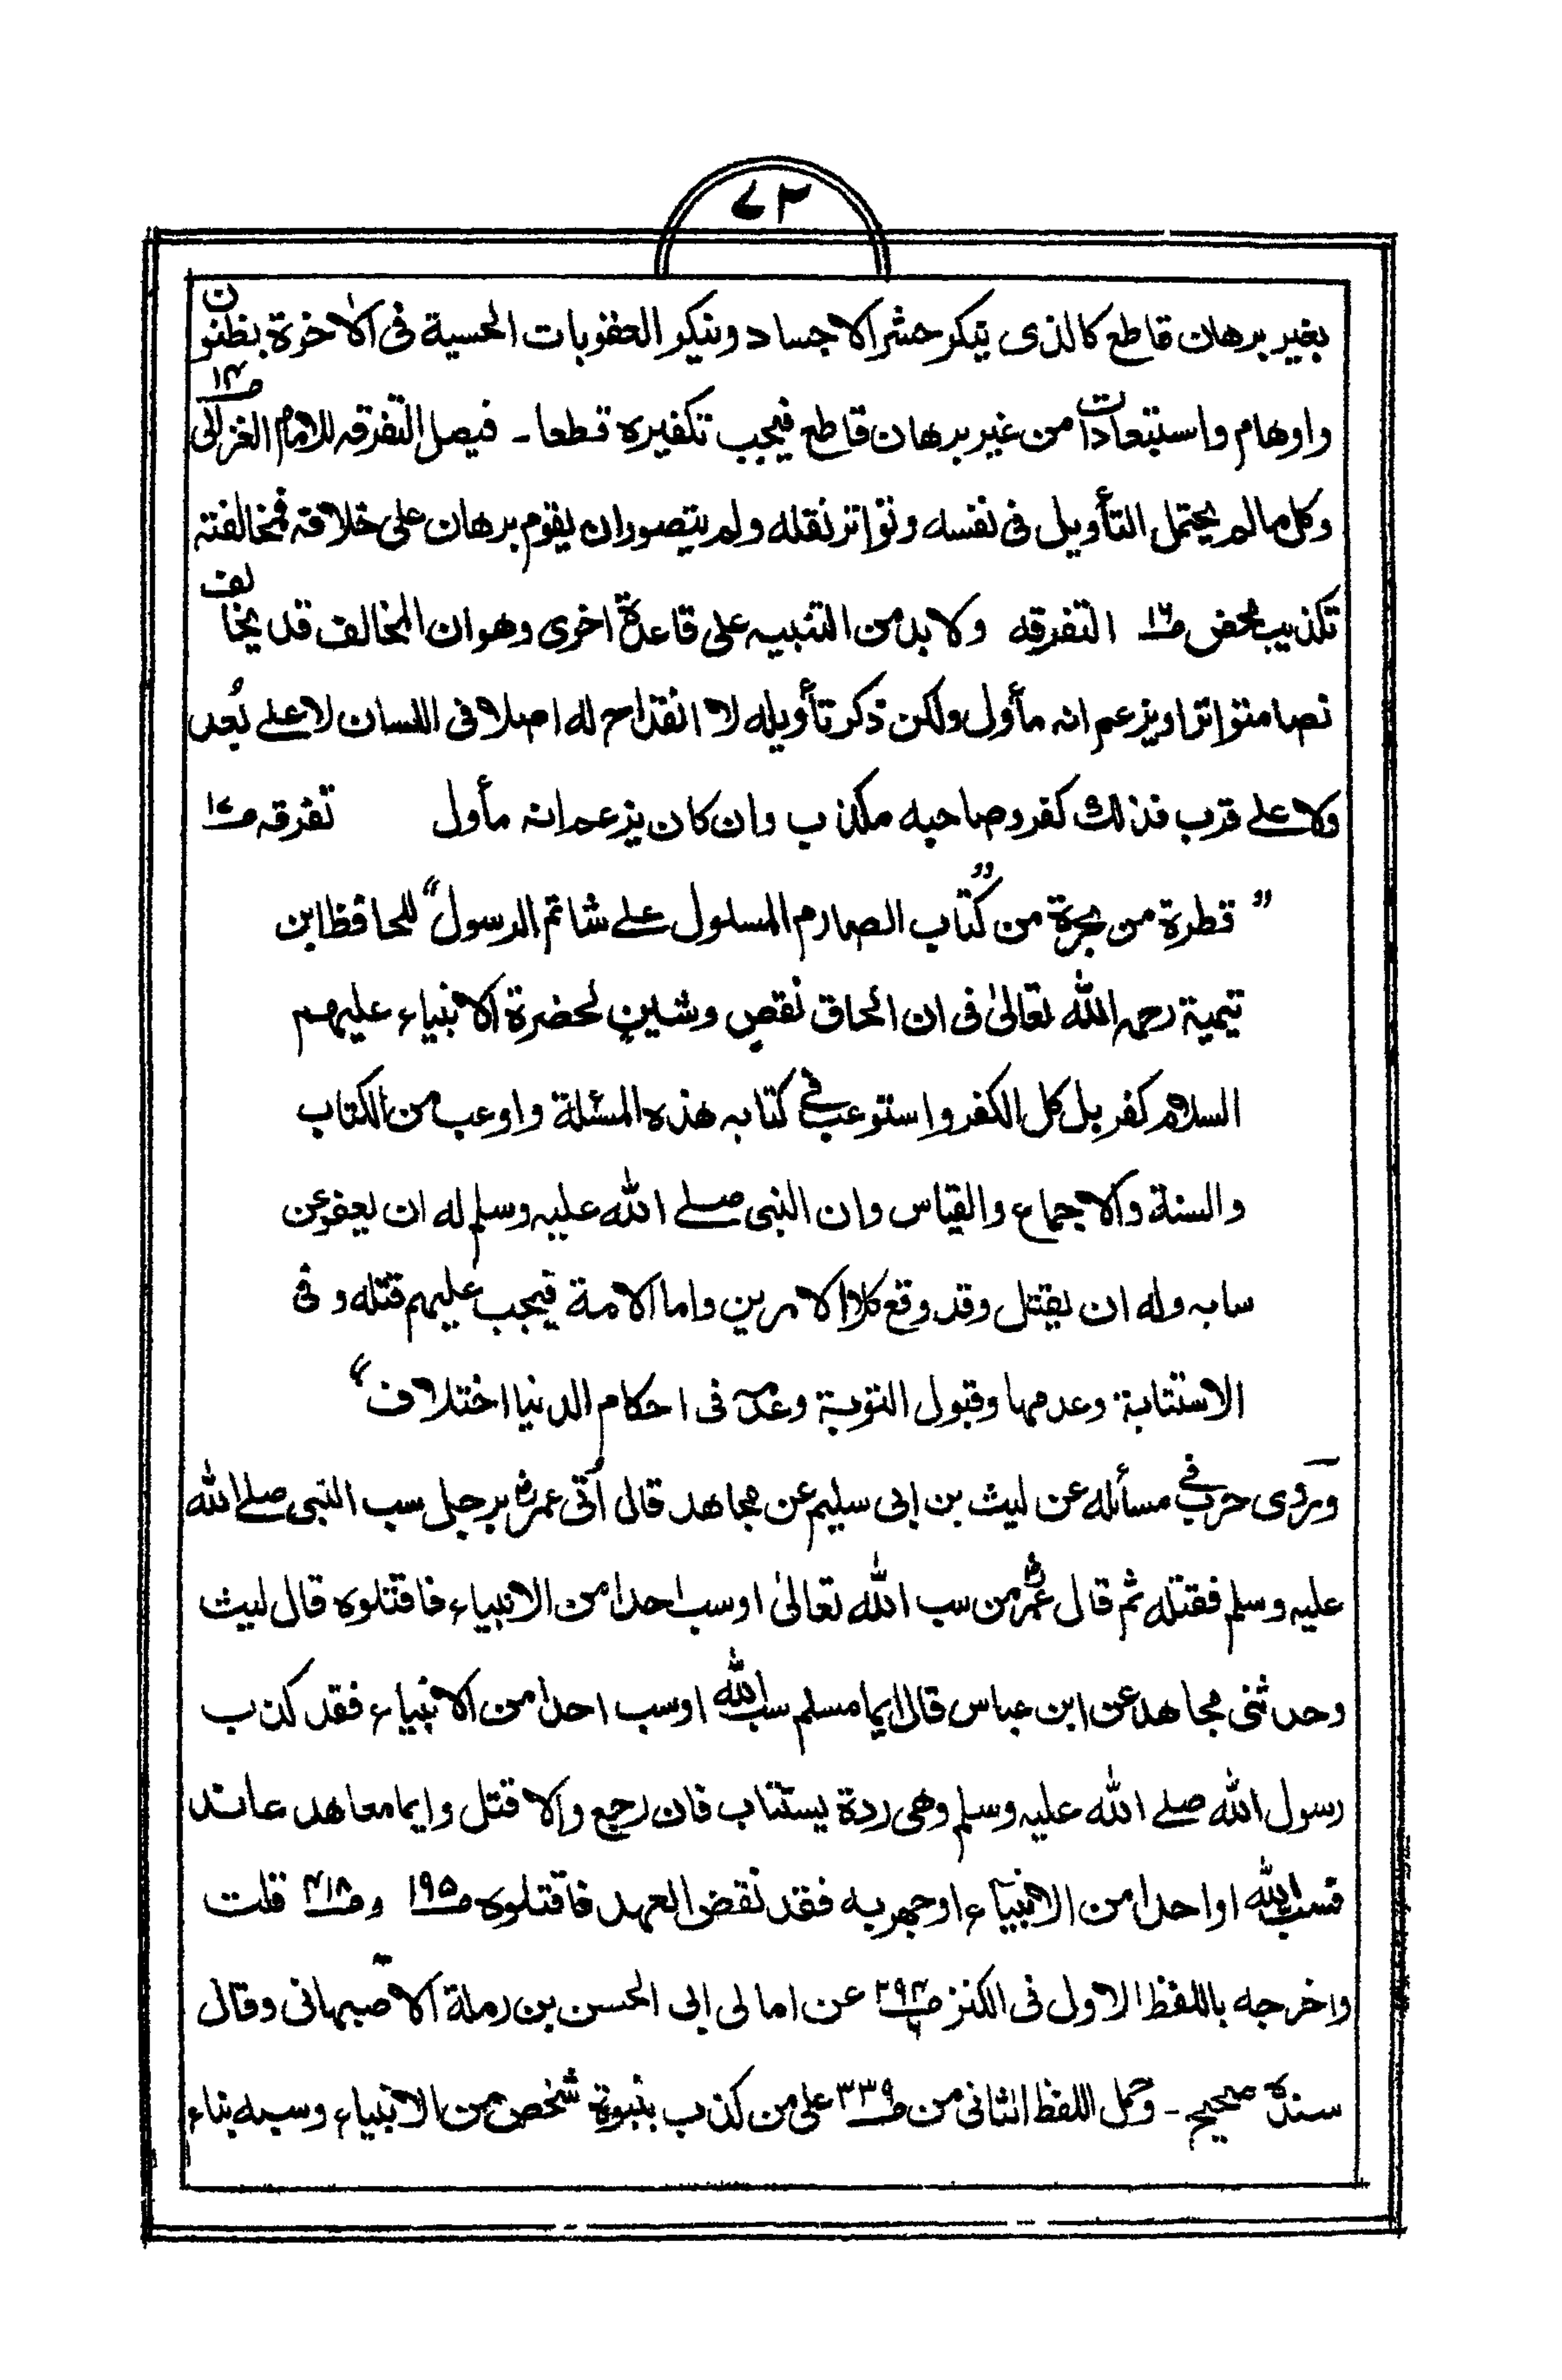 ٧٢
بغير برهان قاطع كالذى ينكر حشر الاجساد وينكر العقوبات الحسية فى الاٰخرة بظنون
واوهام واستبعادات من غير برهان قاطع فيجب تكفيره قطعا ـ فيصل التفرقه للامام الغزالى ص١٤
وكل مالم يحتمل التأويل فى نفسه وتواتر نقله ولم يتصور ان يقوم برهان على خلافه فمخالفته
تكذيب محض ص١٦ التفرقه ولا بد من التنبيه على قاعدة اخرى وهو ان المخالف قد يخالف
نصا متواترا ويزعم انه مأول ولكن ذكر تأويله لا انقداح له اصلا فى اللسان لا على بُعد
ولا على قرب فذلك كفر وصاحبه مكذب وان كان يزعم انه مأول تفرقه ص١٧
" قطرة من بحرة من "كتاب الصارم المسلول على شاتم الرسول" للحافظ ابن
تيمية رحمه الله تعالىٰ فى ان الحاق نقصٍ وشينٍ لحضرة الانبياء عليهم
السلام كفر بل كل الكفر واستوعب فى كتابه هذه المسئلة واوعب من الكتاب
والسنة والاجماع والقياس وان النبى صلے الله عليه وسلم له ان يعفو عن
سابه وله ان يقتل وقد وقع كلا الامرين واما الامة فيجب عليهم قتله وفى
الاستتابة وعدمها وقبول التوبة وعدمه فى احكام الدنيا اختلاف"
وروى حرب فى مسائله عن ليث بن ابى سليم عن مجاهد قال اُتى عمرؓ برجل سب النبى صلے الله
عليه وسلم فقتله ثم قال عمرؓ من سب الله تعالىٰ او سب احدا من الانبياء فاقتلوه قال ليث
وحدثنى مجاهد عن ابن عباس قال ايما مسلم سب الله او سب احدا من الانبياء فقد كذب
رسول الله صلے الله عليه وسلم وهى ردة يستتاب فان رجع والا قتل وايما معاهد عاند
فسب الله او احدا من الانبياء او جهر به فقد نقض العهد فاقتلوه ص١٩٥ وص٤١٨ قلت
واخرجه باللفظ الاول فى الكنز ص٢٩٤ عن امالى ابى الحسن بن رملة الاصبهانى وقال
سنده صحيح ـ وحمل اللفظ الثانى من ص٣٣٩ على من كذب بنبوة شخص من الانبياء وسبه بناء